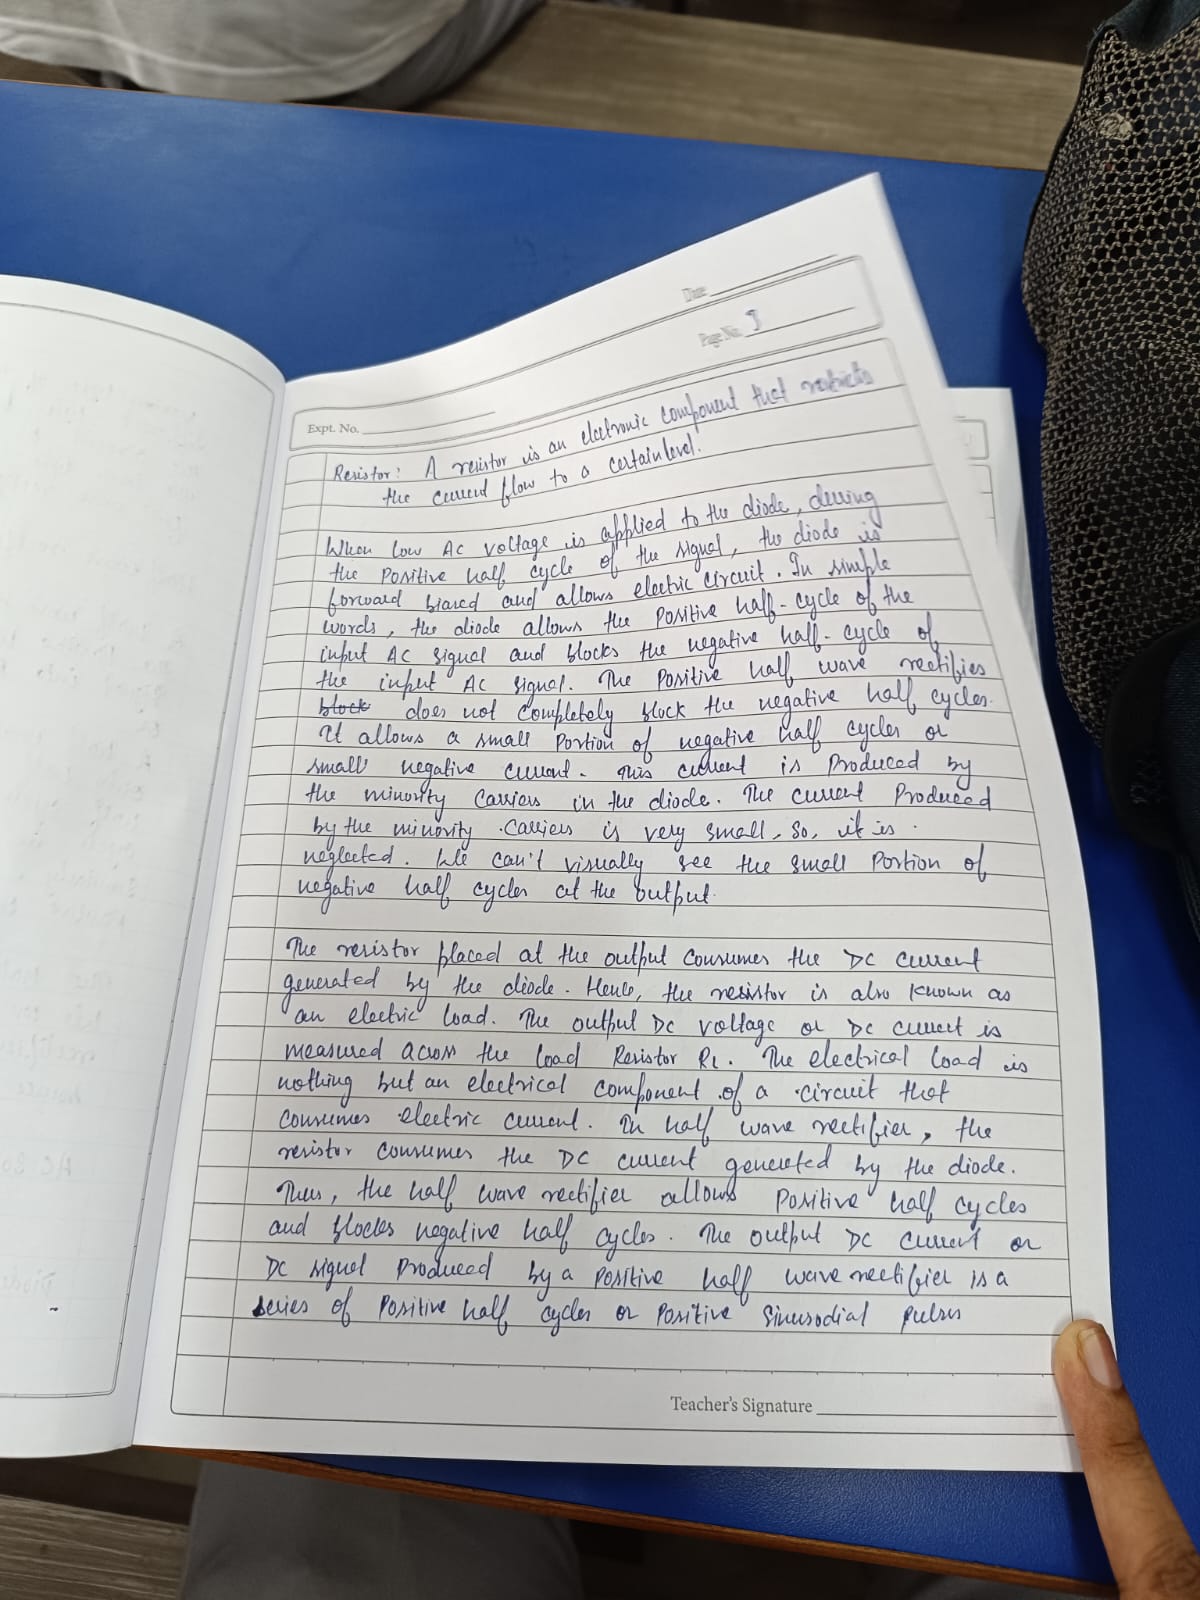 Date
Page No. 3
Expt. No.
Resistor: A resistor is an electronic component that restricts
the current flow to a certain level.
When low AC voltage is applied to the diode, during
the Positive half cycle of the signal, the diode is
forward biased and allows electric circuit. In simple
words, the diode allows the Positive half-cycle of the
input AC signal and blocks the negative half-cycle of
the input AC signal. The Positive half wave rectifies
block does not Completely block the negative half cycles.
It allows a small Portion of negative half cycles or
small negative current. This current is Produced by
the minority Carriers in the diode. The current Produced
by the minority Carriers is very small, So, it is
neglected. We can't visually see the small Portion of
negative half cycles at the output.
The resistor placed at the output consumes the DC current
generated by the diode. Hence, the resistor is also known as
an electric load. The output DC voltage or DC current is
measured across the load Resistor RL. The electrical load is
nothing but an electrical component of a circuit that
consumes electric current. In half wave rectifier, the
resistor consumes the DC current generated by the diode.
Thus, the half wave rectifier allows Positive half cycles
and blocks negative half cycles. The output DC current or
DC signal Produced by a Positive half wave rectifier is a
series of Positive half cycles or Positive Sinusodial pulses
Teacher's Signature